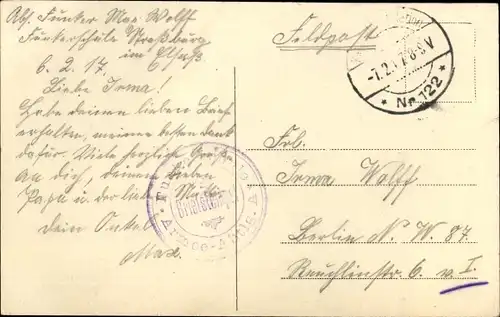 Abs. Funker Max Wolff
Funkerschule Straßburg
im Elsaß
6. 2. 17.
Liebe Irma!
Habe deinen lieben Brief
erhalten, meinen besten dank
dafür. Viele herzliche Grüße
an dich, deinen lieben
Papa u. der lieben
dein Onkel
Max.
Briefstempel
Feldpost
-7.2.17. 8-9 V
* Nr. 122 *
Frl.
Irma Wolff
Berlin N. W. 87.
Reuchlinstr. 6. v. I.